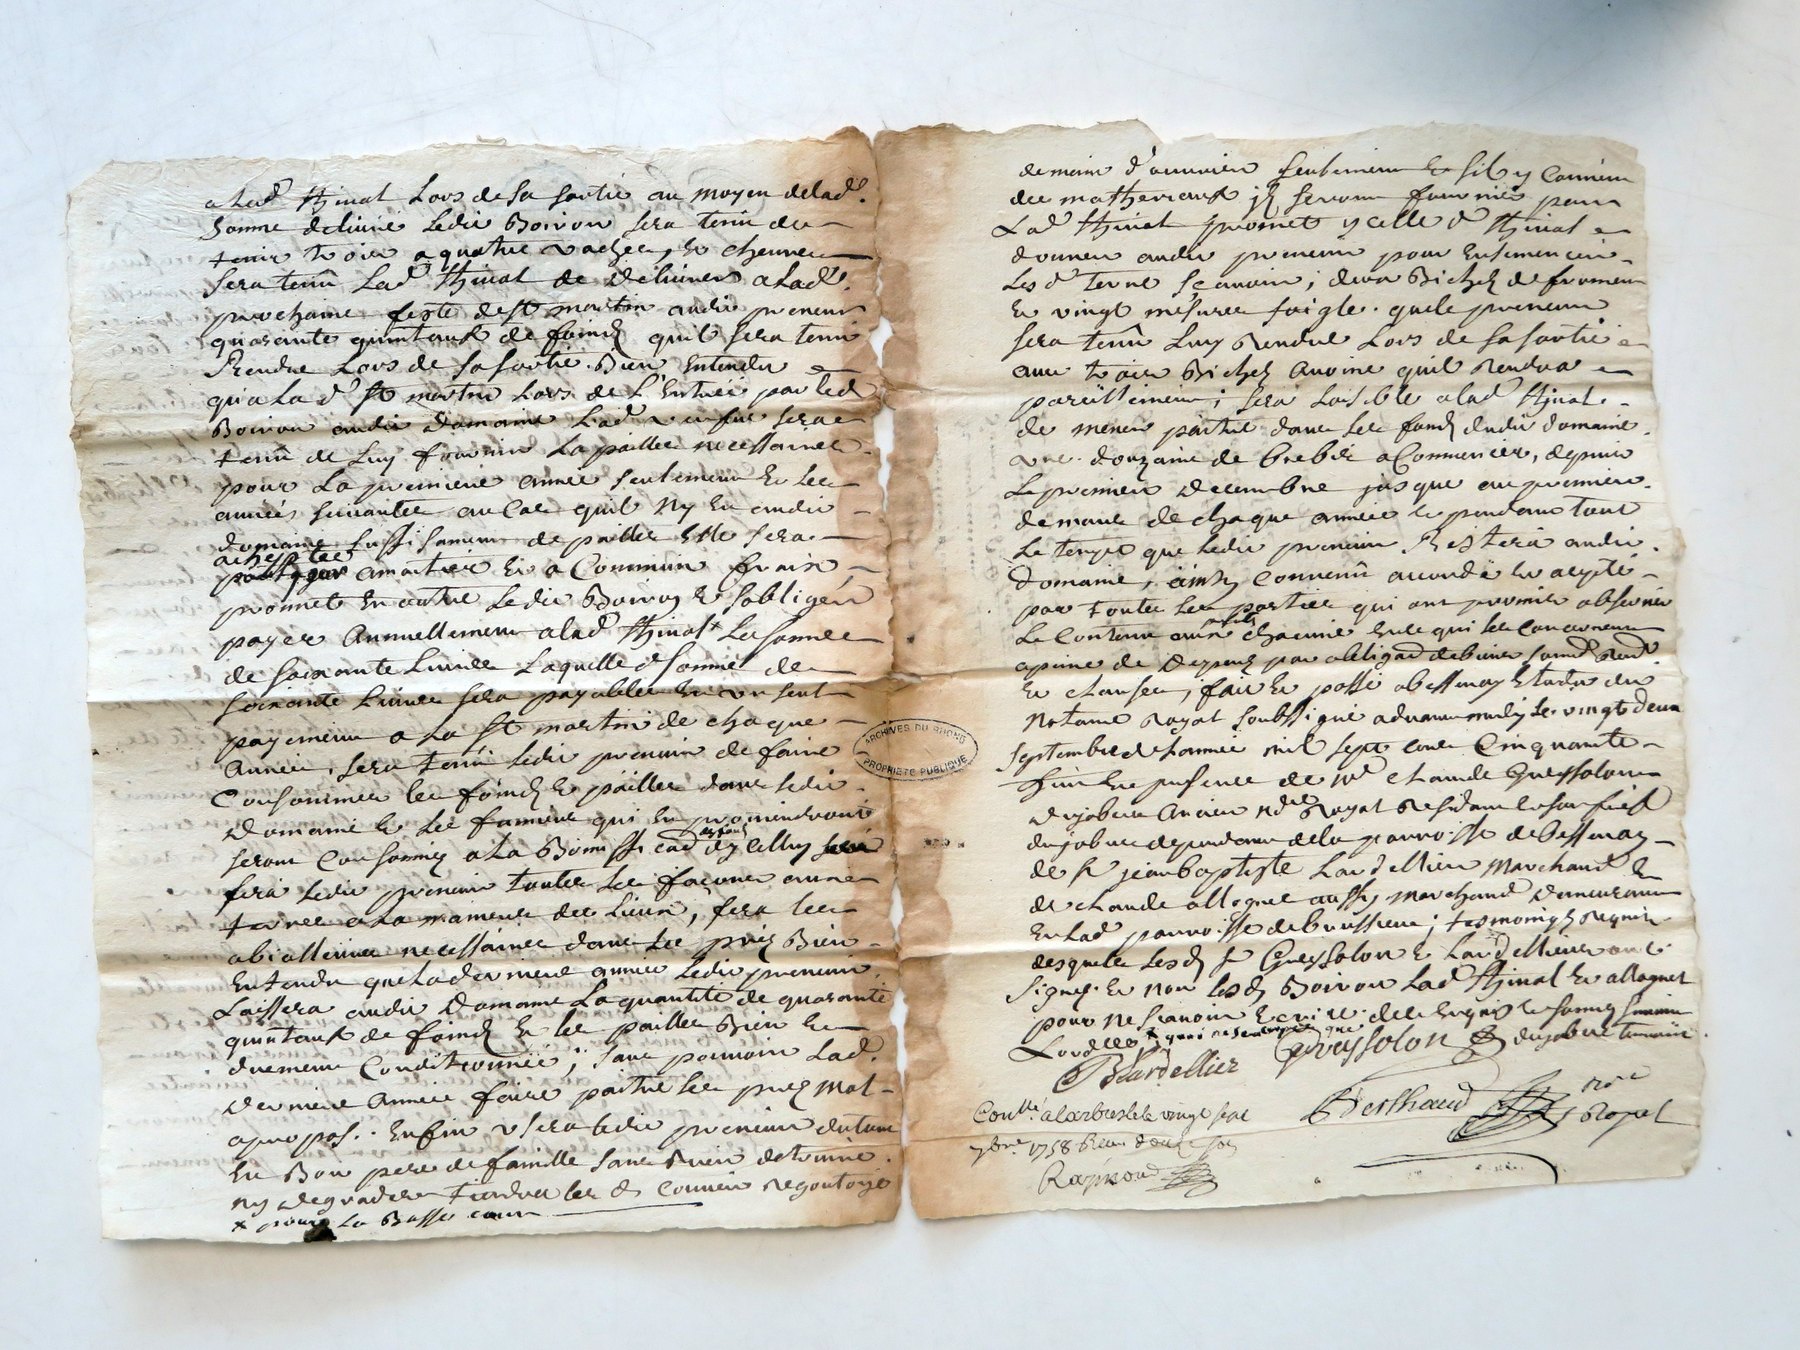 a lad. thivat Lors de sa sortie au moyen de lad.
somme delivré ledit Boiron sera tenu de
tenir trois a quatre vaches, et
sera tenü Lad. thivat de delivrer a Lad.
prochaine feste de st martin audit preneur
quarante quintaux de foind qu'il sera tenu
Rendre Lors de sa sortie. Bien Entendu
qu'a La d. st martin Lors de L'Entreé par led.
Boiron audit domaine Lad. sera
tenü de Luy fournir La paille necessaires
pour La premiere année seulement Et les
années suivantes au Cas quil Ny En audit
domaine suffisament de paille Elle sera
acheptée
amoitier Et a Commun fraix
promet En outre Ledit Boiron Et s'obligent
payer Annuellement a lad. thivat x La somme
de soixante Livres Laquelle d. somme de
soixante Livres sera payable En un seul
payement a La st martin de chaque
Année, sera tenü ledit preneur de faire
Consommer les foind et pailles dans ledit
domaine et les fumiers qui En proviendront
seront Consommés a La Bonifficaon des fonds d'ycelluy
fera ledit preneur toutes les façons aux
terres a La maniere des Lieux, fera les
necessaires dans les prez Bien
Entendu que La derniere année Ledit preneur
Laissera audit Domaine La quantité de quarante
quintaux de foind Et les pailles Bien Et
duement Conditionnéé, sans pouvoir Lad.
derniere Année faire paitre les prez mal
apropos. Enfin usera ledit preneur du tout
En Bon pere de famille sans Rien deteriorer
ny degrader
x pour La Basse cour
de main d'ouvrier seulement Et s'il y Convient
des matheriaux ils seront fournis par
La d. thivat promet ycelle d. thivat
donner audit preneur pour Ensemencer
Les d. terres sçavoir, deux Bichets de froment
Et vingt mesures soigle. que le preneur
sera tenü Luy Rendre Lors de sa sortie
avec trois Bichets Avoine quil Rendra
pareillement, sera Loisible a lad. thivat
de mener paitre dans les fonds dudit domaine
une douzaine de brebis a Commencer, depuis
Le premier decembre jusque au premier
de mars de chaque année Et pendant tout
Le temps que Ledit preneur Restera audit
domaine, ainsy Convenü accordé Et accepté
par toutes Les parties qui ont promis observer
Le Contenu chacune En ce qui les Concernent
a peine de depens par obligaon de biens soumn Renon
Et clauses, fait Et passé a bessenay Etude du
Notaire Royal soussigné advant midy le vingt deux
septembre de L'année mil sept cent Cinquante
huit En presence de me claude Gueyssolon
dujobert Ancien Nore Royal Residant
dujobert dependant de la parroisse de bessenay
de sr jean baptiste Lardellier marchand Et
de claude allognet aussy marchand demeurant
En Lad. parroisse de brussieu, tesmoingts Requis
desquels Lesd. sr Gueyssolon Et Lardellier ont
signé Et non Lesd. Boiron Lad. thivat Et allognet
pour ne sçavoir Ecrire de ce Enquis Et sommés
BLardellier Gueyssolon dujobert temoin
Conllé a Larbresle le vingt sept
7bre 1758 Reçu douze sols
Raymond
Berthaud nore Royal
ARCHIVES DU RHONE
PROPRIETE PUBLIQUE